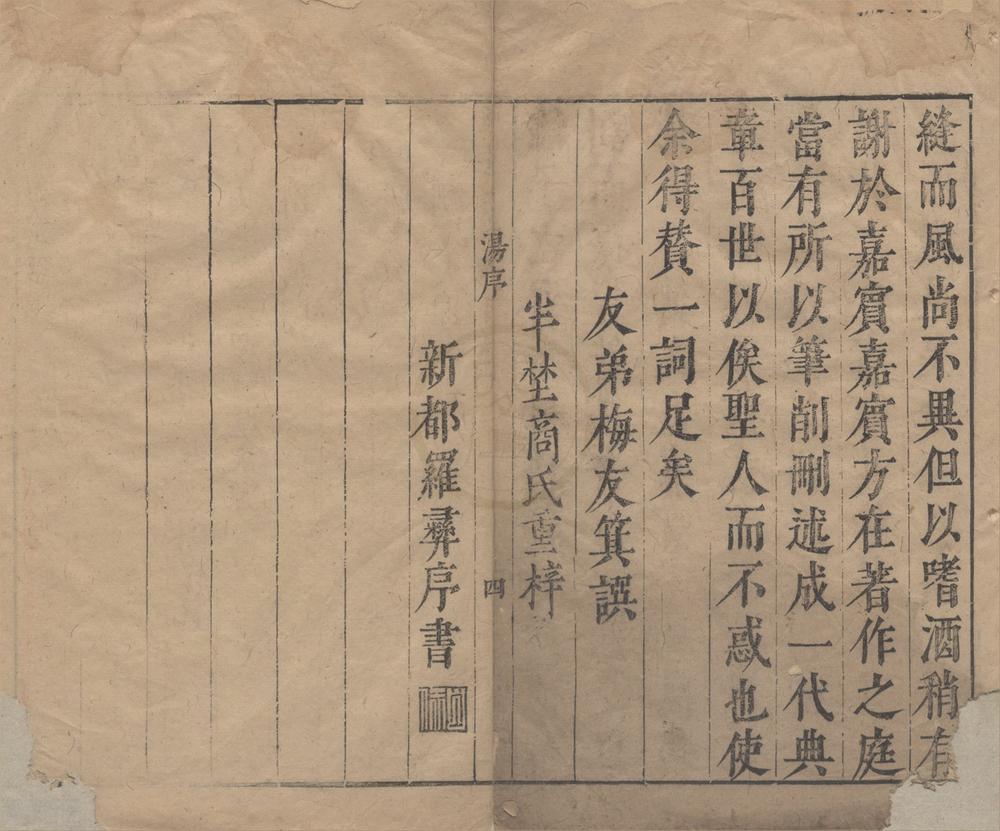 縫而風尚不異但以嗜酒稍有
謝於嘉賓嘉賓方在著作之庭
當有所以筆削刪述成一代典
章百世以俟聖人而不惑也使
余得賛一詞足矣
友弟梅友箕譔
半埜商氏重梓
湯序
四
新都羅彞序書